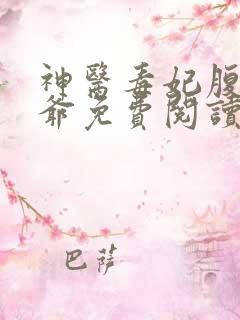 神醫毒妃腹
爺免費閱讀
巴薩